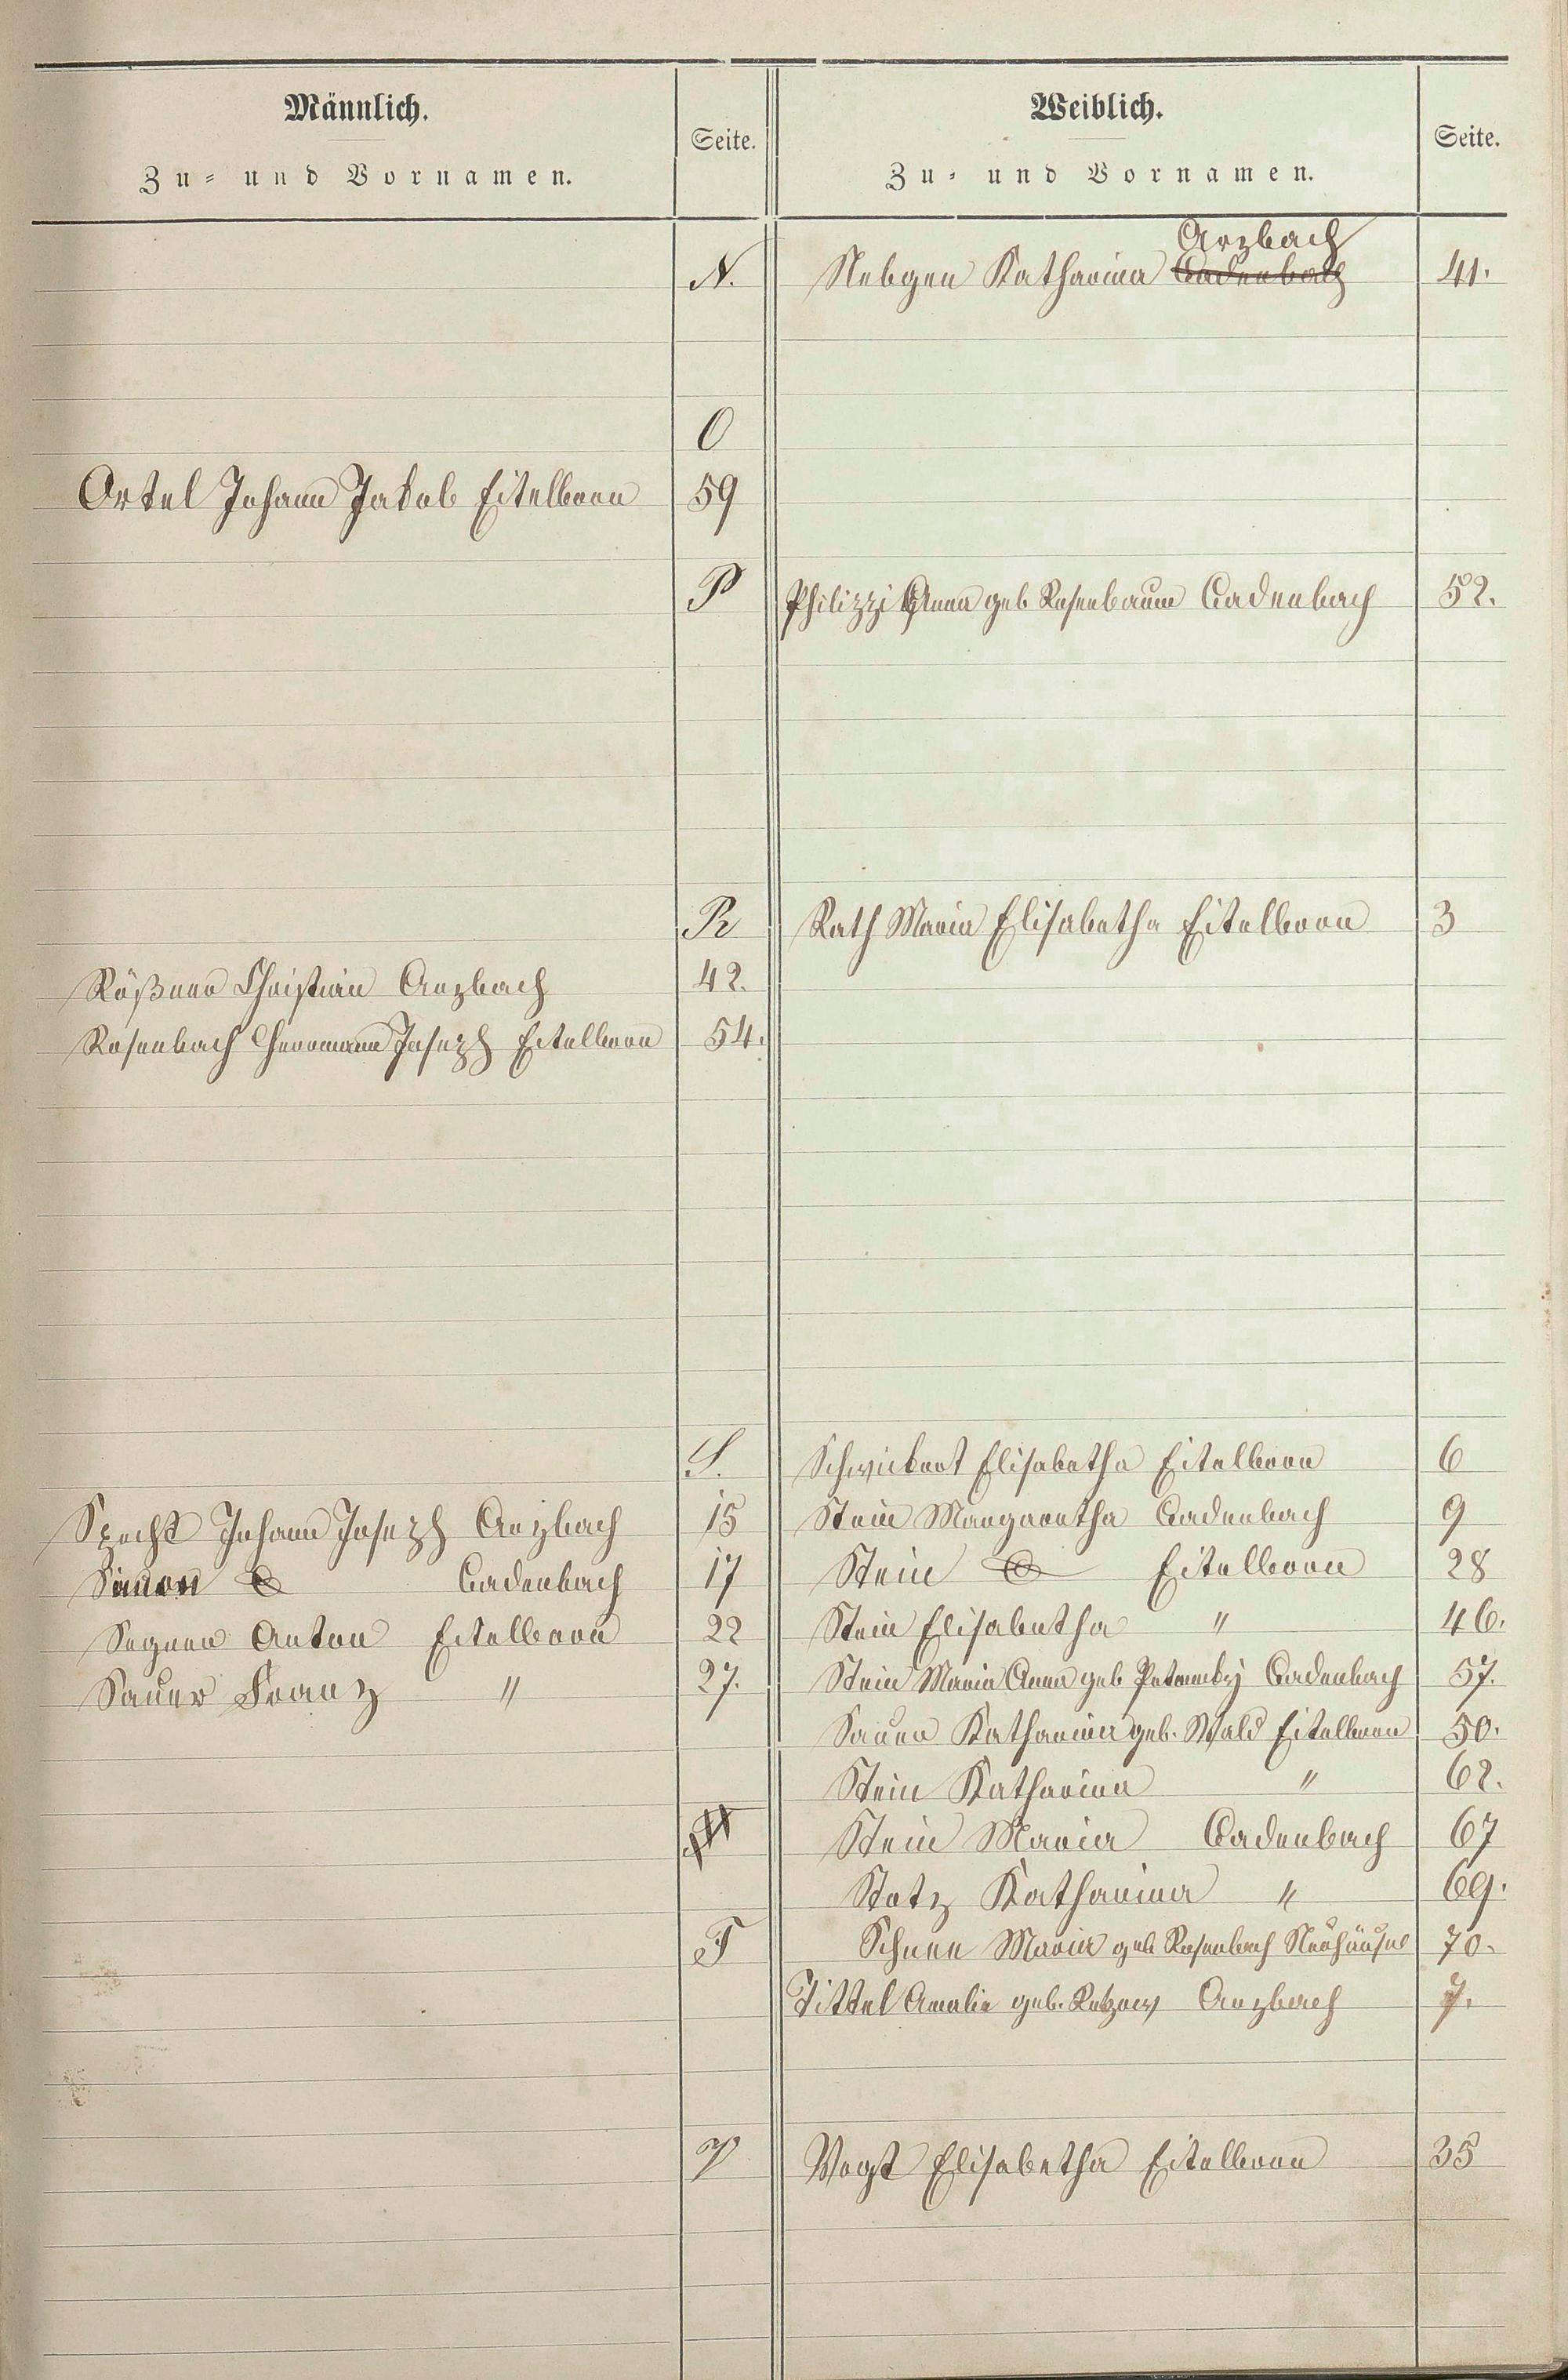 Männlich.
Zu- und Vornamen.
Seite.
Weiblich.
Zu- und Vornamen.
Seite.
Arzbach
N. Nebgen Katharina Cadenbach 41.
O
Ortel Johann Jakob Eitelborn 59
P Philippi Anna geb Rosenbaum Cadenbach 52.
R Rath Maria Elisabetha Eitelborn 3
Rößner Christian Arzbach 42.
Rosenbach Herrmann Joseph Eitelborn 54.
S. Schwickert Elisabetha Eitelborn 6
Specht Johann Joseph Arzbach 15 Stein Margaretha Cadenbach 9
Simon Cadenbach 17 Stein Eitelborn 28
Anton Eitelborn 22 Stein Elisabetha " 46.
Sauer Franz " 27. Stein Maria Anna geb Cadenbach 57.
Sauer Katharina geb. Wald Eitelborn 50.
Stein Katharina " 62.
Stein Maria Cadenbach 67
Stotz Katharina " 69.
T Maria geb Rosenbach Neuhäusel 70.
Tittel Amalie geb. Arzbach 7.
V Vogt Elisabetha Eitelborn 35